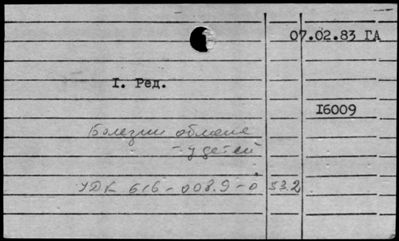 07.02.83 ГА
I. Ред.
I6009
Болезни обмена
- у детей
УДК 616-008.9-053.2